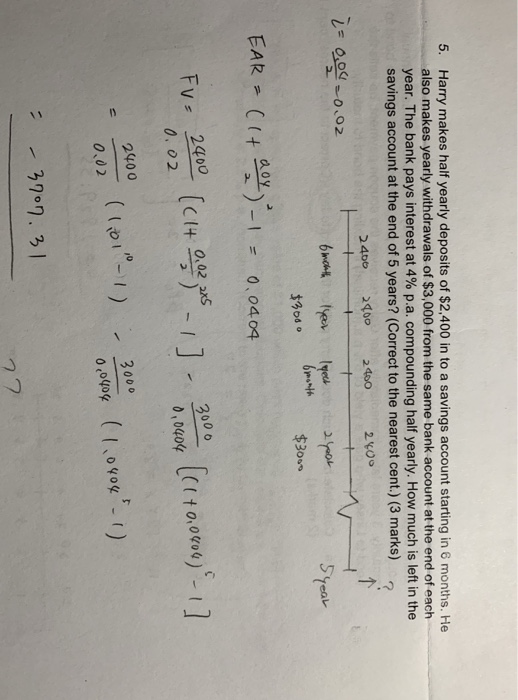 5. Harry makes half yearly deposits of $2,400 in to a savings account starting in 6 months. He
also makes yearly withdrawals of $3,000 from the same bank account at the end of each
year. The bank pays interest at 4% p.a. compounding half yearly. How much is left in the
savings account at the end of 5 years? (Correct to the nearest cent.) (3 marks)
?
2400 2400 2400 2400
i = 0.04/2 = 0.02
6 month 1 year 1 year 6 month 2 year 5 year
$3000 $3000
EAR = (1 + 0.04/2)² - 1 = 0.0404
FV = 2400/0.02 [(1 + 0.02/2)^2×5 - 1] - 3000/0.0404 [(1 + 0.0404)^5 - 1]
= 2400/0.02 (1.01^10 - 1) - 3000/0.0404 (1.0404^5 - 1)
= - 3707.31
??